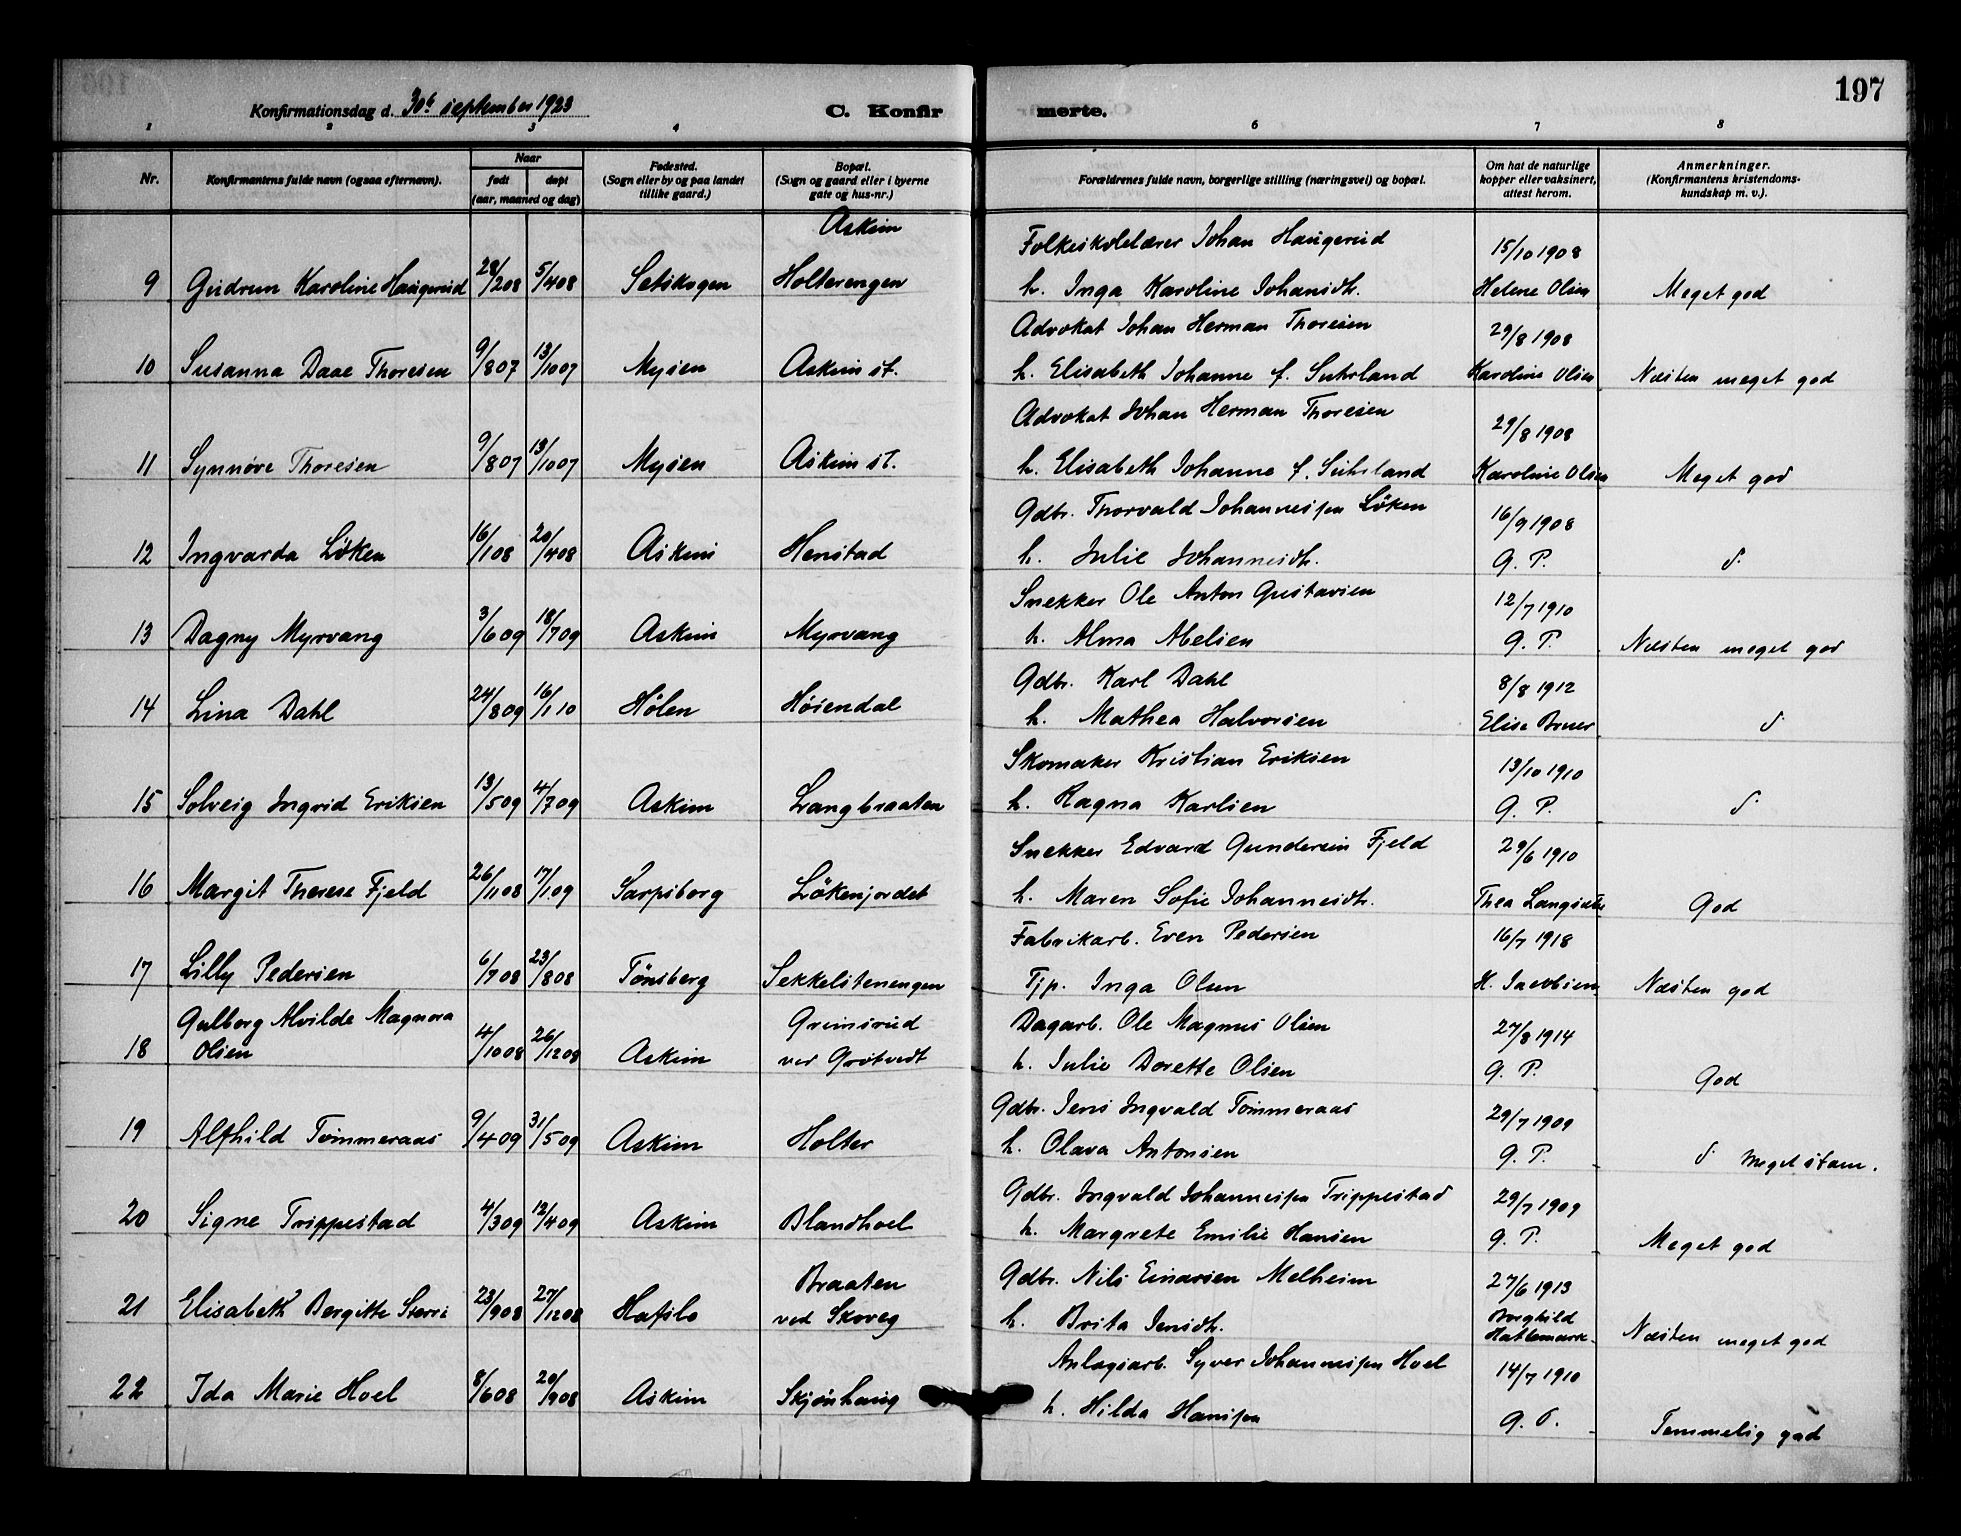 197
Konfirmationsdag d. 30te september 1923
C. Konfirmerte.
1 2 3 4 6 7 8
Nr.
Konfirmantens fulde navn (ogsaa efternavn).
Naar
født døpt
(aar, maaned og dag)
Fødested.
(Sogn eller by og paa landet
tillike gaard.)
Bopæl.
(Sogn og gaard eller i byerne
gate og hus-nr.)
Forældrenes fulde navn, borgerlige stilling (næringsvei) og bopæl.
Om hat de naturlige
kopper eller vaksinert,
attest herom.
Anmerkninger.
(Konfirmantens kristendoms-
kundskap m. v.).
Askim
Folkeskolelærer Johan Haugerud 15/10 1908
9 Gudrun Karoline Haugerud 28/2 08 5/4 08 Setskogen Holterengen h. Inga Karoline Johansdh. Helene Olsen Meget god
Advokat Johan Herman Thoresen 29/8 1908
10 Susanna Daae Thoresen 9/8 07 13/10 07 Mysen Askim st. h. Elisabeth Johanne f. Suhrland Karoline Olsen Næsten meget god
Advokat Johan Herman Thoresen 29/8 1908
11 Synnøve Thoresen 9/8 07 13/10 07 Mysen Askim st. h. Elisabeth Johanne f. Suhrland Karoline Olsen Meget god
Gdbr. Thorvald Johannessen Løken 16/9 1908
12 Ingvarda Løken 16/1 08 20/4 08 Askim Henstad h. Julie Johannesdh. G. P. d.
Snekker Ole Anton Gustavsen 12/7 1910
13 Dagny Myrvang 3/6 09 18/7 09 Askim Myrvang h. Alma Abelsen G. P. Næsten meget god
Gdbr. Karl Dahl 8/8 1912
14 Lina Dahl 24/8 09 16/1 10 Hølen Høsendal h. Mathea Halvorsen Elise Bruer d
Skomaker Kristian Eriksen 13/10 1910
15 Solveig Ingrid Eriksen 13/5 09 4/7 09 Askim Langbraaten h. Ragna Karlsen G. P. d.
Snekker Edvard Gundersen Fjeld 29/6 1910
16 Margit Therese Fjeld 26/11 08 17/1 09 Sarpsborg Løkenjordet h. Maren Sofie Johannesdh. Thea Langsæter God
Fabrikarb. Even Pedersen 16/7 1918
17 Lilly Pedersen 6/7 08 23/8 08 Tønsberg Sekkelstenengen Tjp. Inga Olsen H. Jacobsen Næsten god
Gulborg Alvilde Magnora Grimsrud Dagarb. Ole Magnus Olsen 27/8 1914
18 Olsen 4/10 08 26/12 08 Askim ved Grøtvedt h. Julie Dorette Olsen G. P. God
Gdbr. Jens Ingvald Tømmeraas 29/7 1909
19 Alfhild Tømmeraas 9/4 09 31/5 09 Askim Holter h. Olava Antonsen G. P. d. Meget stam.
Gdbr. Ingvald Johannessen Trippestad 29/7 1909
20 Signe Trippestad 4/3 09 12/4 09 Askim Blandhoel h. Margrete Emilie Hansen G. P. Meget god
Braaten Gdbr. Nils Einarsen Melheim 27/6 1913
21 Elisabeth Bergitte Sterri 23/9 08 27/12 08 Hafslo ved Skoveg h. Brita Jensdh. Borghild Hattemark Næsten meget god
Anlægsarb. Syver Johannessen Hoel 14/7 1910
22 Ida Marie Hoel 8/6 08 20/9 08 Askim Skjønhaug h. Hilda Hanssen G. P. Temmelig god